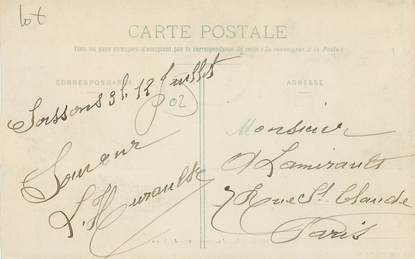 lot
CARTE POSTALE
Tous les pays étrangers n'acceptent pas la correspondance au recto (Se renseigner à la Poste)
CORRESPONDANCE
Soissons 12 Juillet
02
L. Hurault
ADRESSE
Monsieur
Lamirault
7 Rue St Claude
Paris